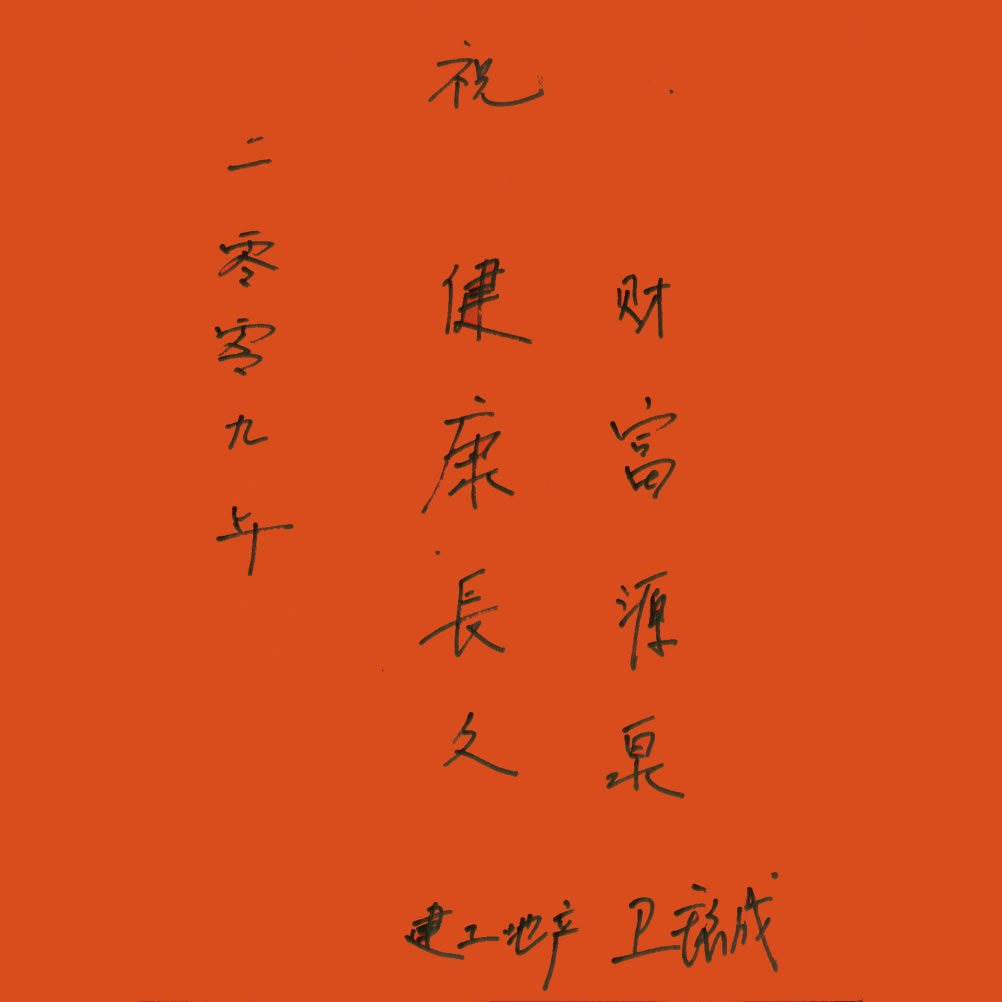 祝
财富源泉
健康長久
二零零九年
建工地产 卫